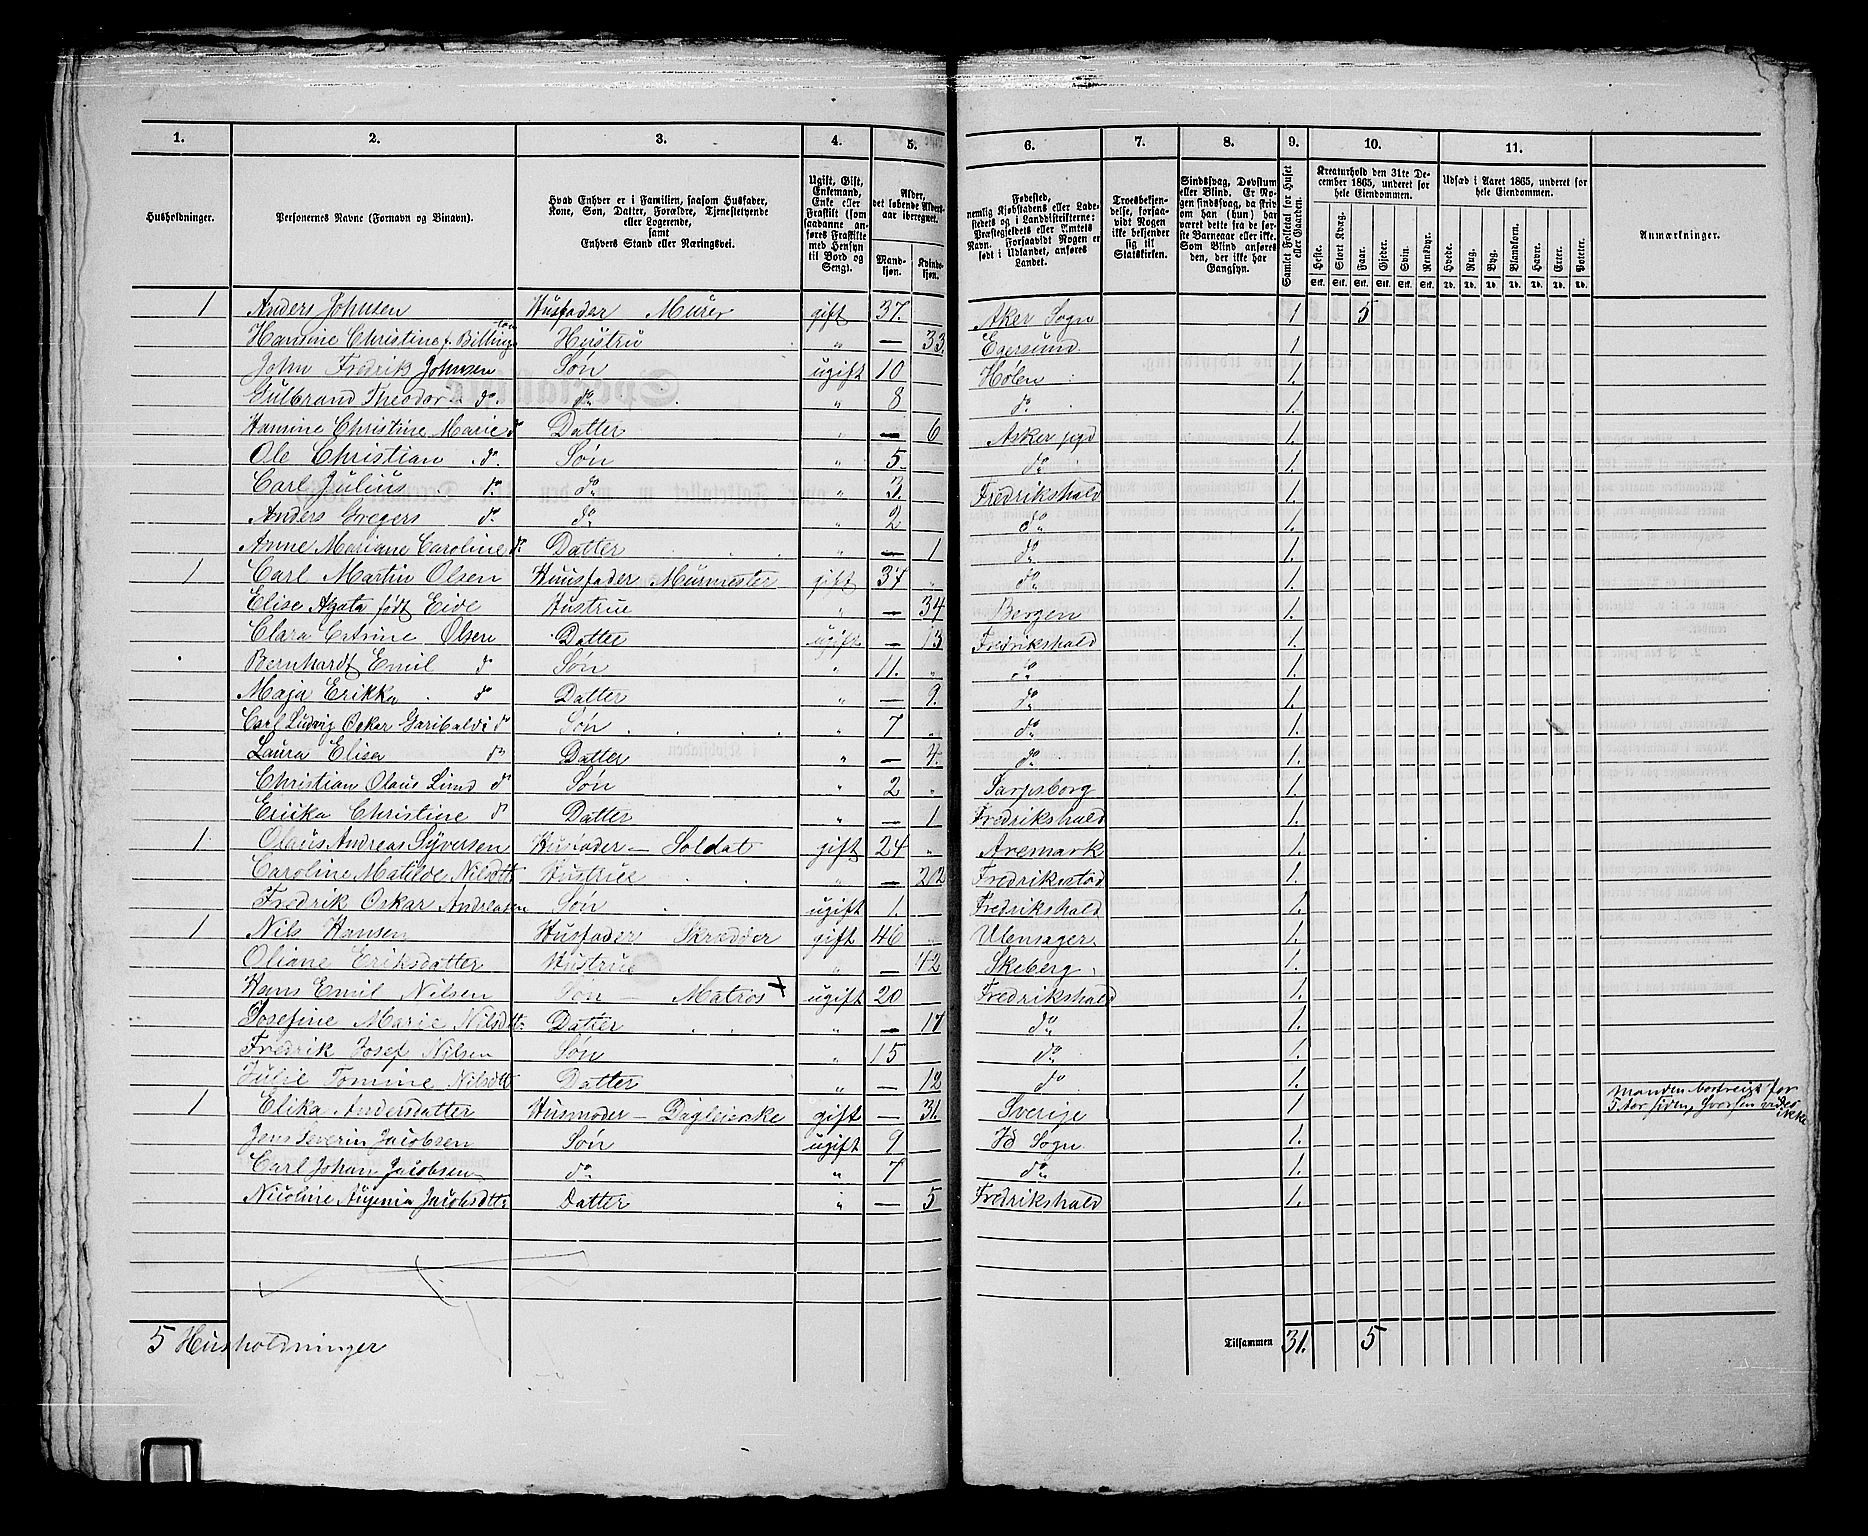 1. 2. 3. 4. 5. 6. 7. 8. 9. 10. 11.
Husholdninger.
Personernes Navne (Fornavn og Binavn).
Hvad Enhver er i Familien, saasom Husfader, Kone, Søn, Datter, Forældre, Tjenestetyende eller Logerende, samt Enhvers Stand eller Næringsvei.
Ugift, Gift, Enkemand, Enke eller Fraskilt (som saadanne anføres Fraskilte med Hensyn til Bord og Seng).
Alder, det løbende Alders-aar iberegnet.
Mandkjøn. Kvindekjøn.
Fødested, nemlig Kjøbstadens eller Ladestedets og i Landdistrikterne: Præstegjeldets eller Amtets Navn. Forsaavidt Nogen er født i Udlandet, anføres Landet.
Troesbekjendelse, forsaavidt Nogen ikke bekjender sig til Statskirken.
Sindssvag, Døvstum eller Blind. Er Nogen sindssvag, da skrives om han (hun) har været dette fra de første Barneaar eller ikke. Som Blind anføres den, der ikke har Gangsyn.
Samlet Folketal for Huset eller Gaarden.
Kreaturhold den 31te December 1865, underet for hele Eiendommen.
Heste. Stort Kvæg. Faar. Gjeder. Svin. Rensdyr.
Udsæd i Aaret 1865, underet for hele Eiendommen.
Hvede. Rug. Byg. Blandkorn. Havre. Erter. Poteter.
Anmærkninger.
1 Anders Johnsen Husfader Murer gift 37. Aker Sogn 1 5
Hansine Christine f. Billing Hustru „ — 33. Egersund 1
John Fredrik Johnsen Søn ugift 10 Hølen 1.
Gulbrand Theodor do. do. „ 8 do. 1.
Hansine Christine Marie do Datter „ — 6 Asker pgd 1.
Ole Christian do. Søn „ 5. do. 1.
Carl Julius do. do. „ 3. Fredrikshald 1.
Anders Gregers do. do. „ 2 do. 1.
Anne Mariane Caroline do Datter „ — 1 do. 1.
1 Carl Martin Olsen Huusfader Murmester gift 37 „ do. 1.
Elise Agata født Eide Hustrue „ — 34 Bergen 1.
Clara Catrine Olsen Datter ugift — 13 Fredrikshald 1.
Bernhardt Emil do Søn „ 11. „ do. 1.
Maja Erikka do Datter „ — 9. do. 1.
Carl Ludvig Oskar Garibaldi do Søn „ 7 „ do. 1.
Laura Elisa do Datter „ — 4. do. 1.
Christian Olaus Lund do Søn „ 2 „ Sarpsborg 1.
Ericka Christine do Datter „ — 1 Fredrikshald 1.
1 Olaus Andreas Syversen Husfader — Soldat gift 24 „ Aremark 1.
Caroline Matilde Nilsdtt: Hustrue „ — 22 Fredrikstad 1.
Fredrik Oskar Andreasen Søn ugift 1. Fredrikshald 1.
1 Nils Hansen Husfader Skrædder gift 46 Ulensager 1.
Oliane Eriksdatter Hustrue „ — 42 Skeberg 1.
Hans Emil Nilsen Søn — Matros + ugift 20 Fredrikshald 1.
Josefine Marie Nilsdtt: Datter „ — 17 do. 1.
Fredrik Josef Nilsen Søn „ 15 do. 1.
Julie Tomine Nilsdtt Datter „ — 12 do. 1.
1 Elika Andersdatter Husmoder — Dagleierske gift — 31. Sverige 1 Manden bortreist for 5 Aar siden, hvorhen vides ikke
Jens Severin Jacobsen Søn ugift 9 Id Sogn 1.
Carl Johan Jacobsen do. „ 7 do. 1.
Nicoline Augenia Jacobsdtt: Datter „ — 5 Fredrikshald 1.
5 Husholdninger Tilsammen 31. 5